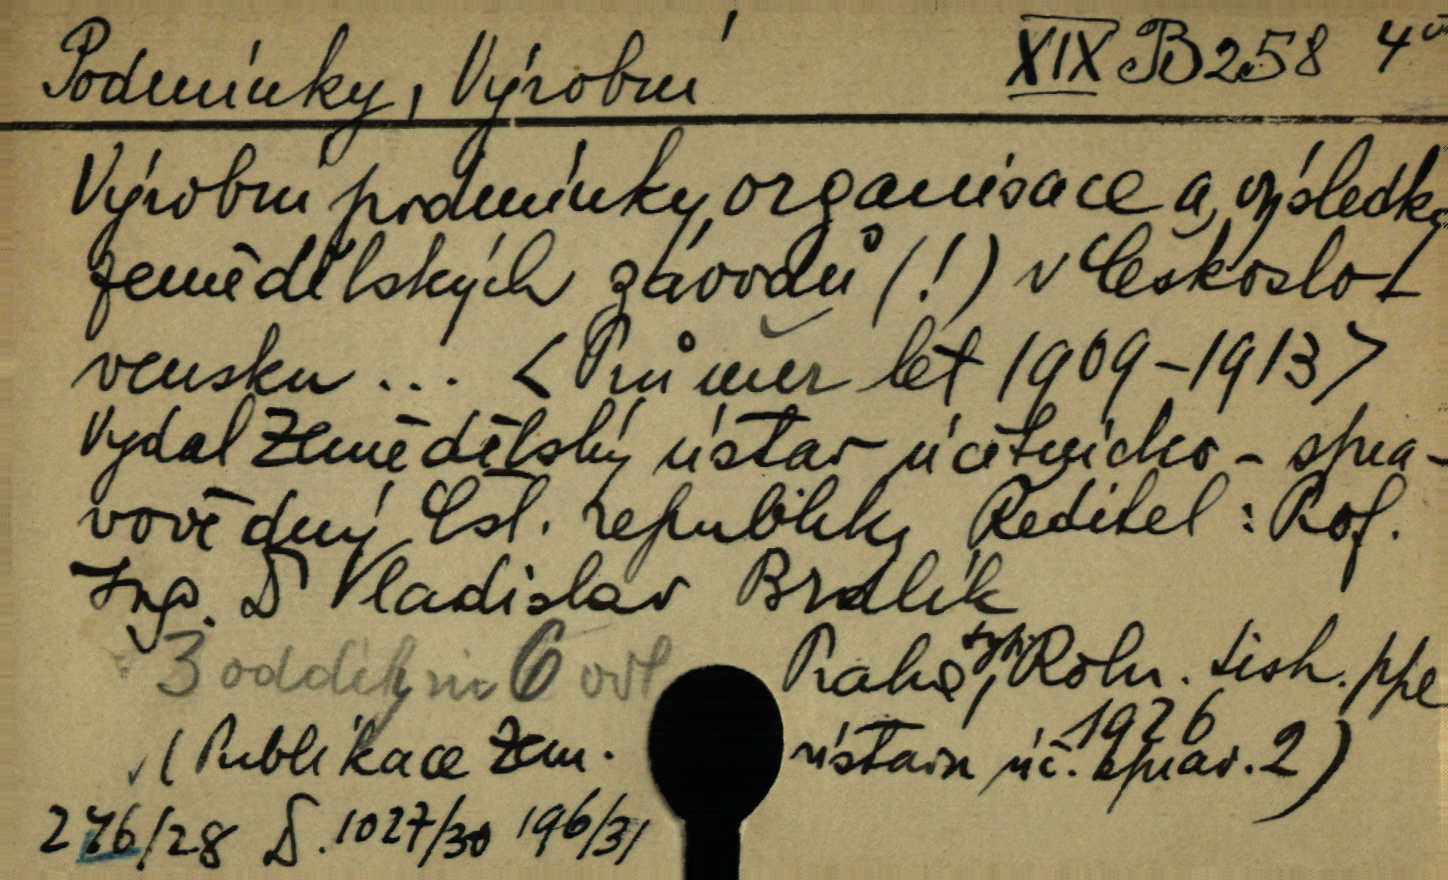 Podmínky, Výrobní XIX B 258 4°
Výrobní podmínky, organisace a výsledky
zemědělských závodů (!) v Českoslo-
vensku ... <Průměr let 1909-1913>
Vydal Zemědělský ústav účetnicko - spra-
vovědný Čsl. republiky Ředitel : Prof.
Ing. Dr Vladislav Brdlík
3 oddíly in 6 Praha, typ. Roln. tisk.
1926
(Publikace Zem. ústavu úč. správ. 2)
276/28 D. 1027/30 196/31